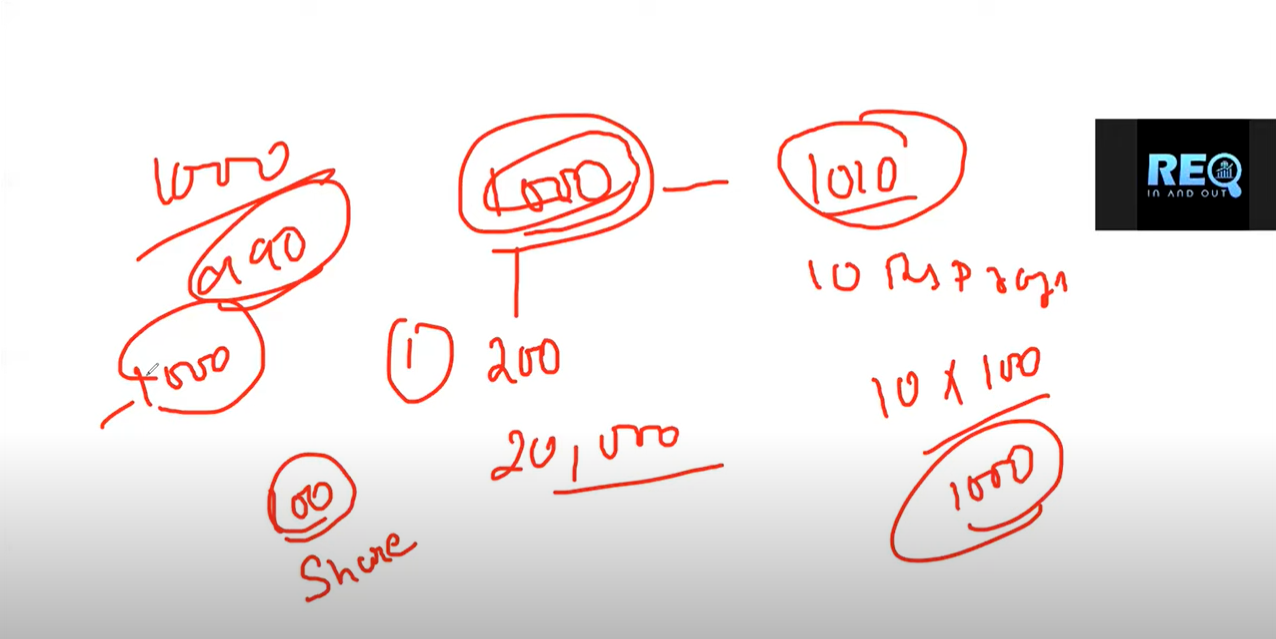 1000
990
1000
100
Share
1000 - 1010
1 200
20,000
10 Rs
10 x 100
1000
REQ
IN AND OUT